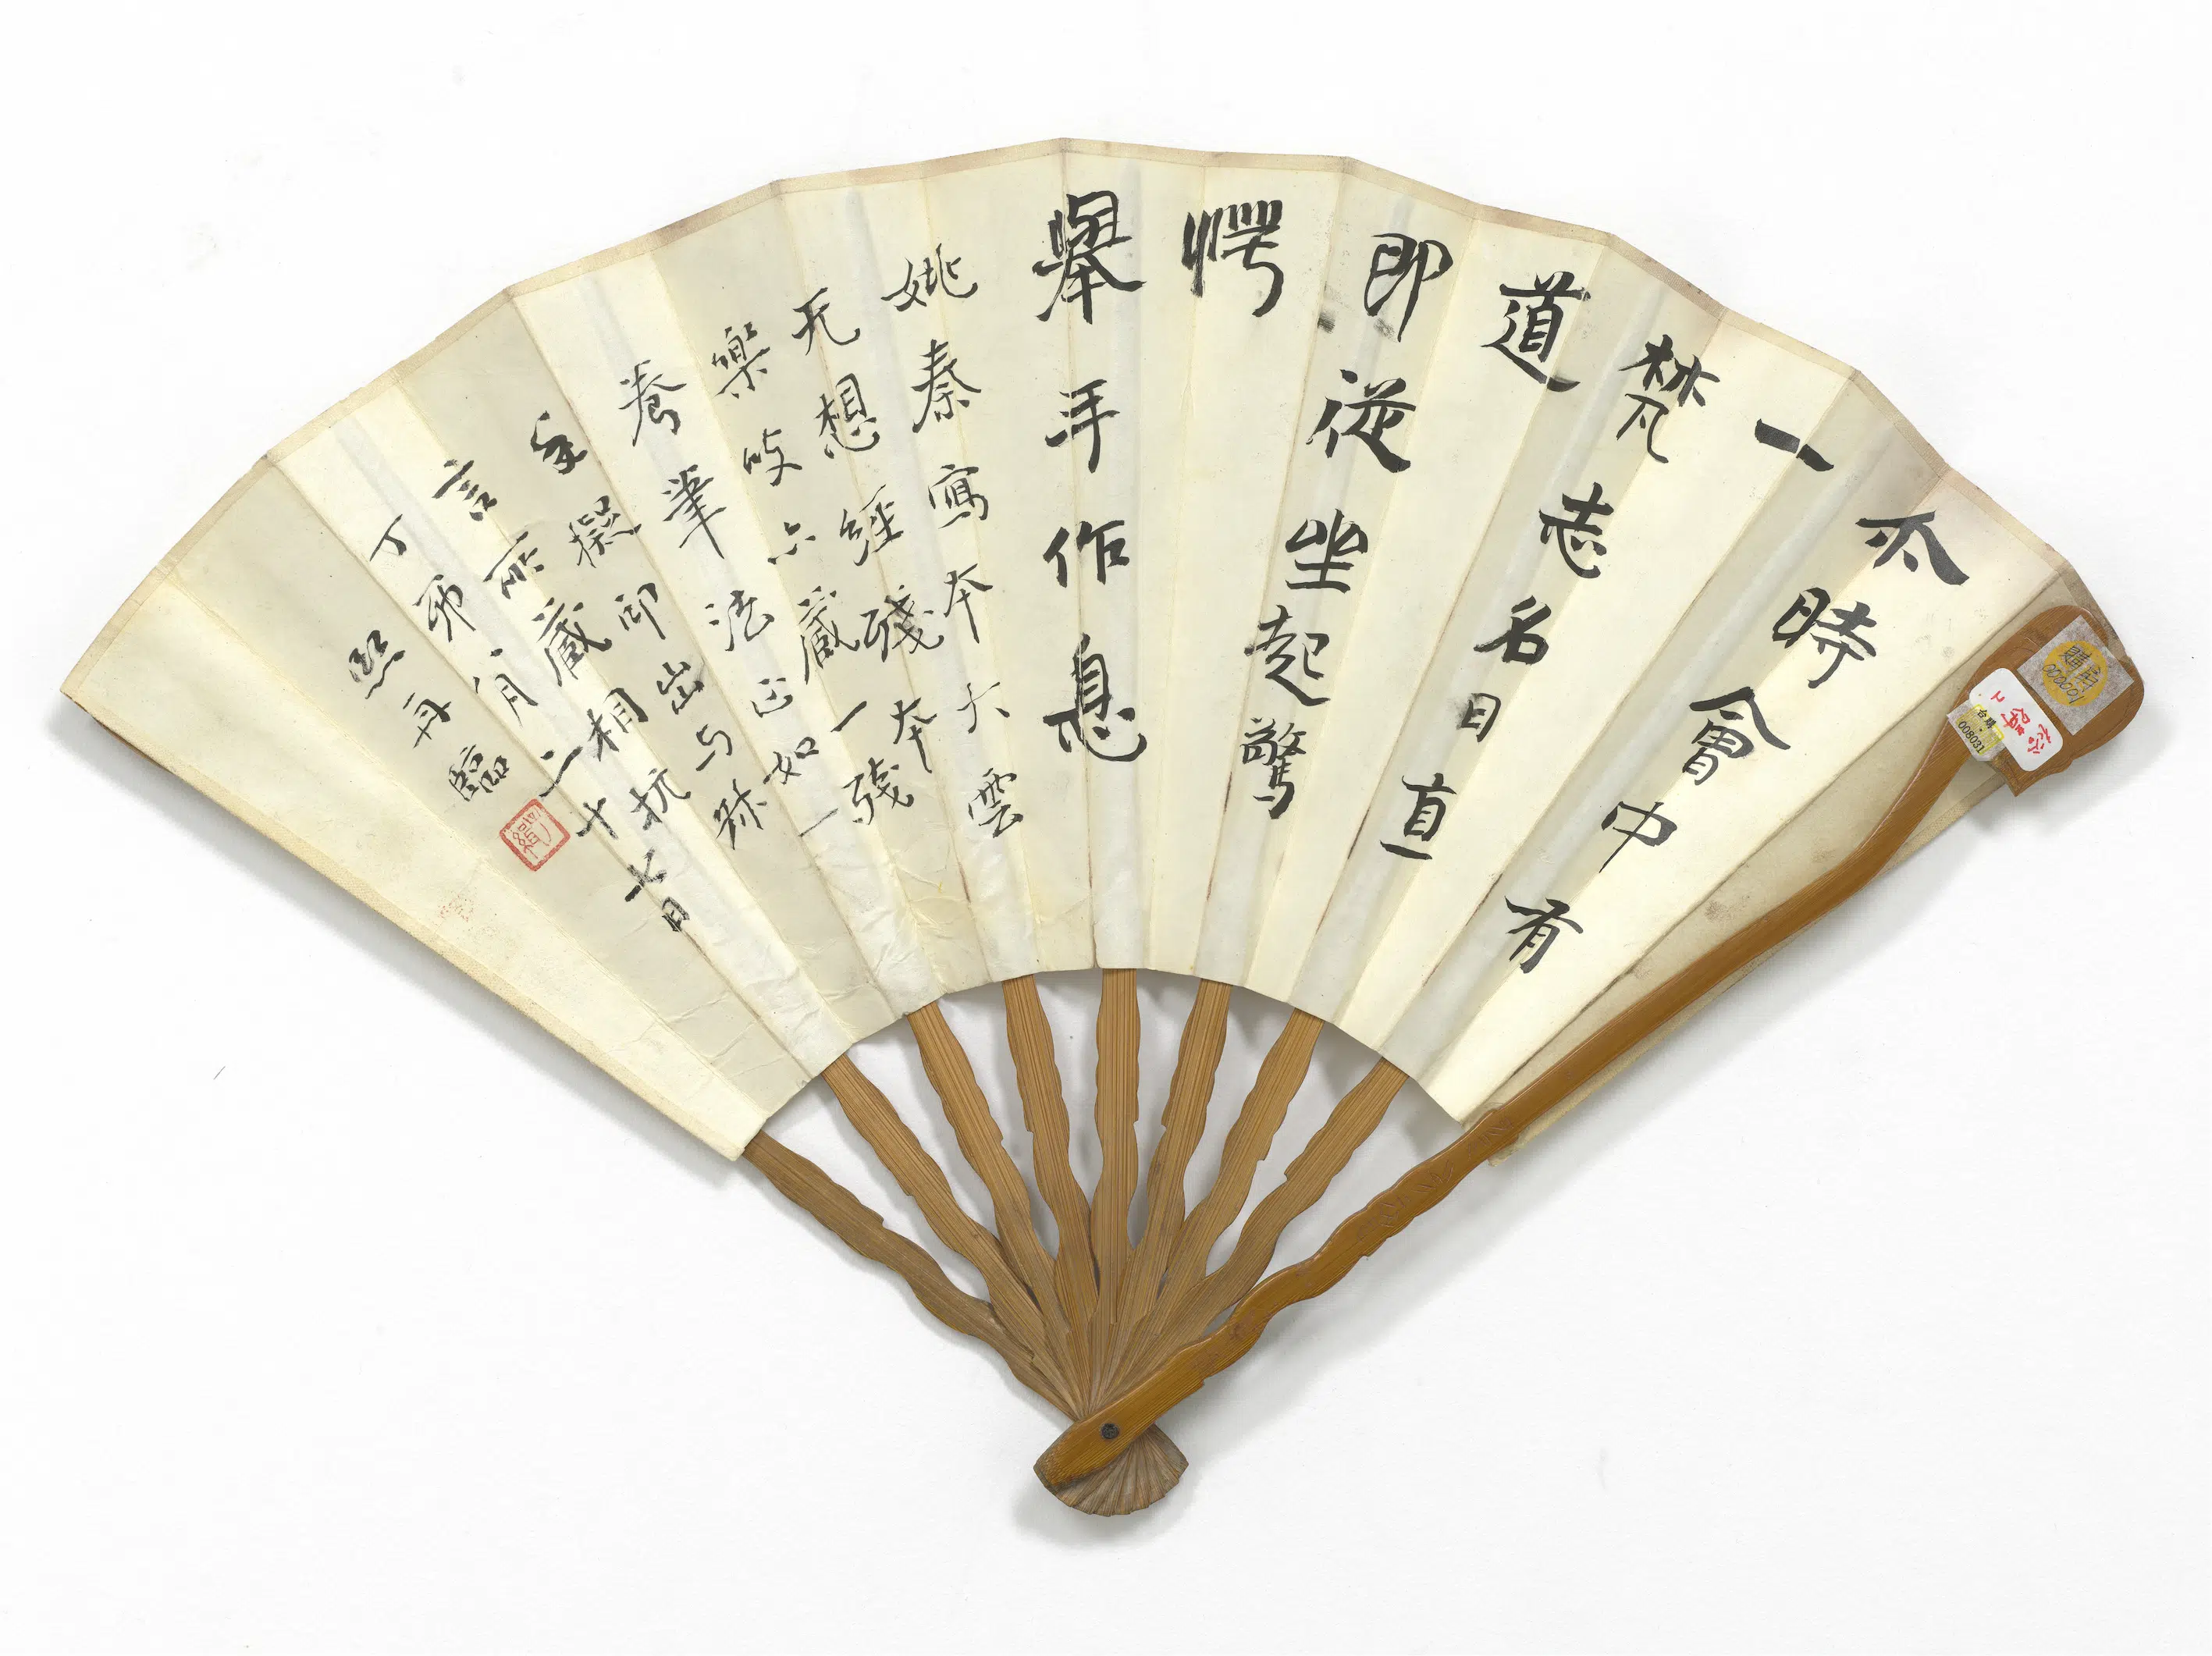 尒時會中有
一
梵志名曰直
道
即從坐起驚
愕
舉手作息
姚秦寫本大雲
无想經殘本
樂亦藏一殘
卷筆法正如一
撰印出与叔
言所藏相抗
丁卯月二十七日
熙再臨